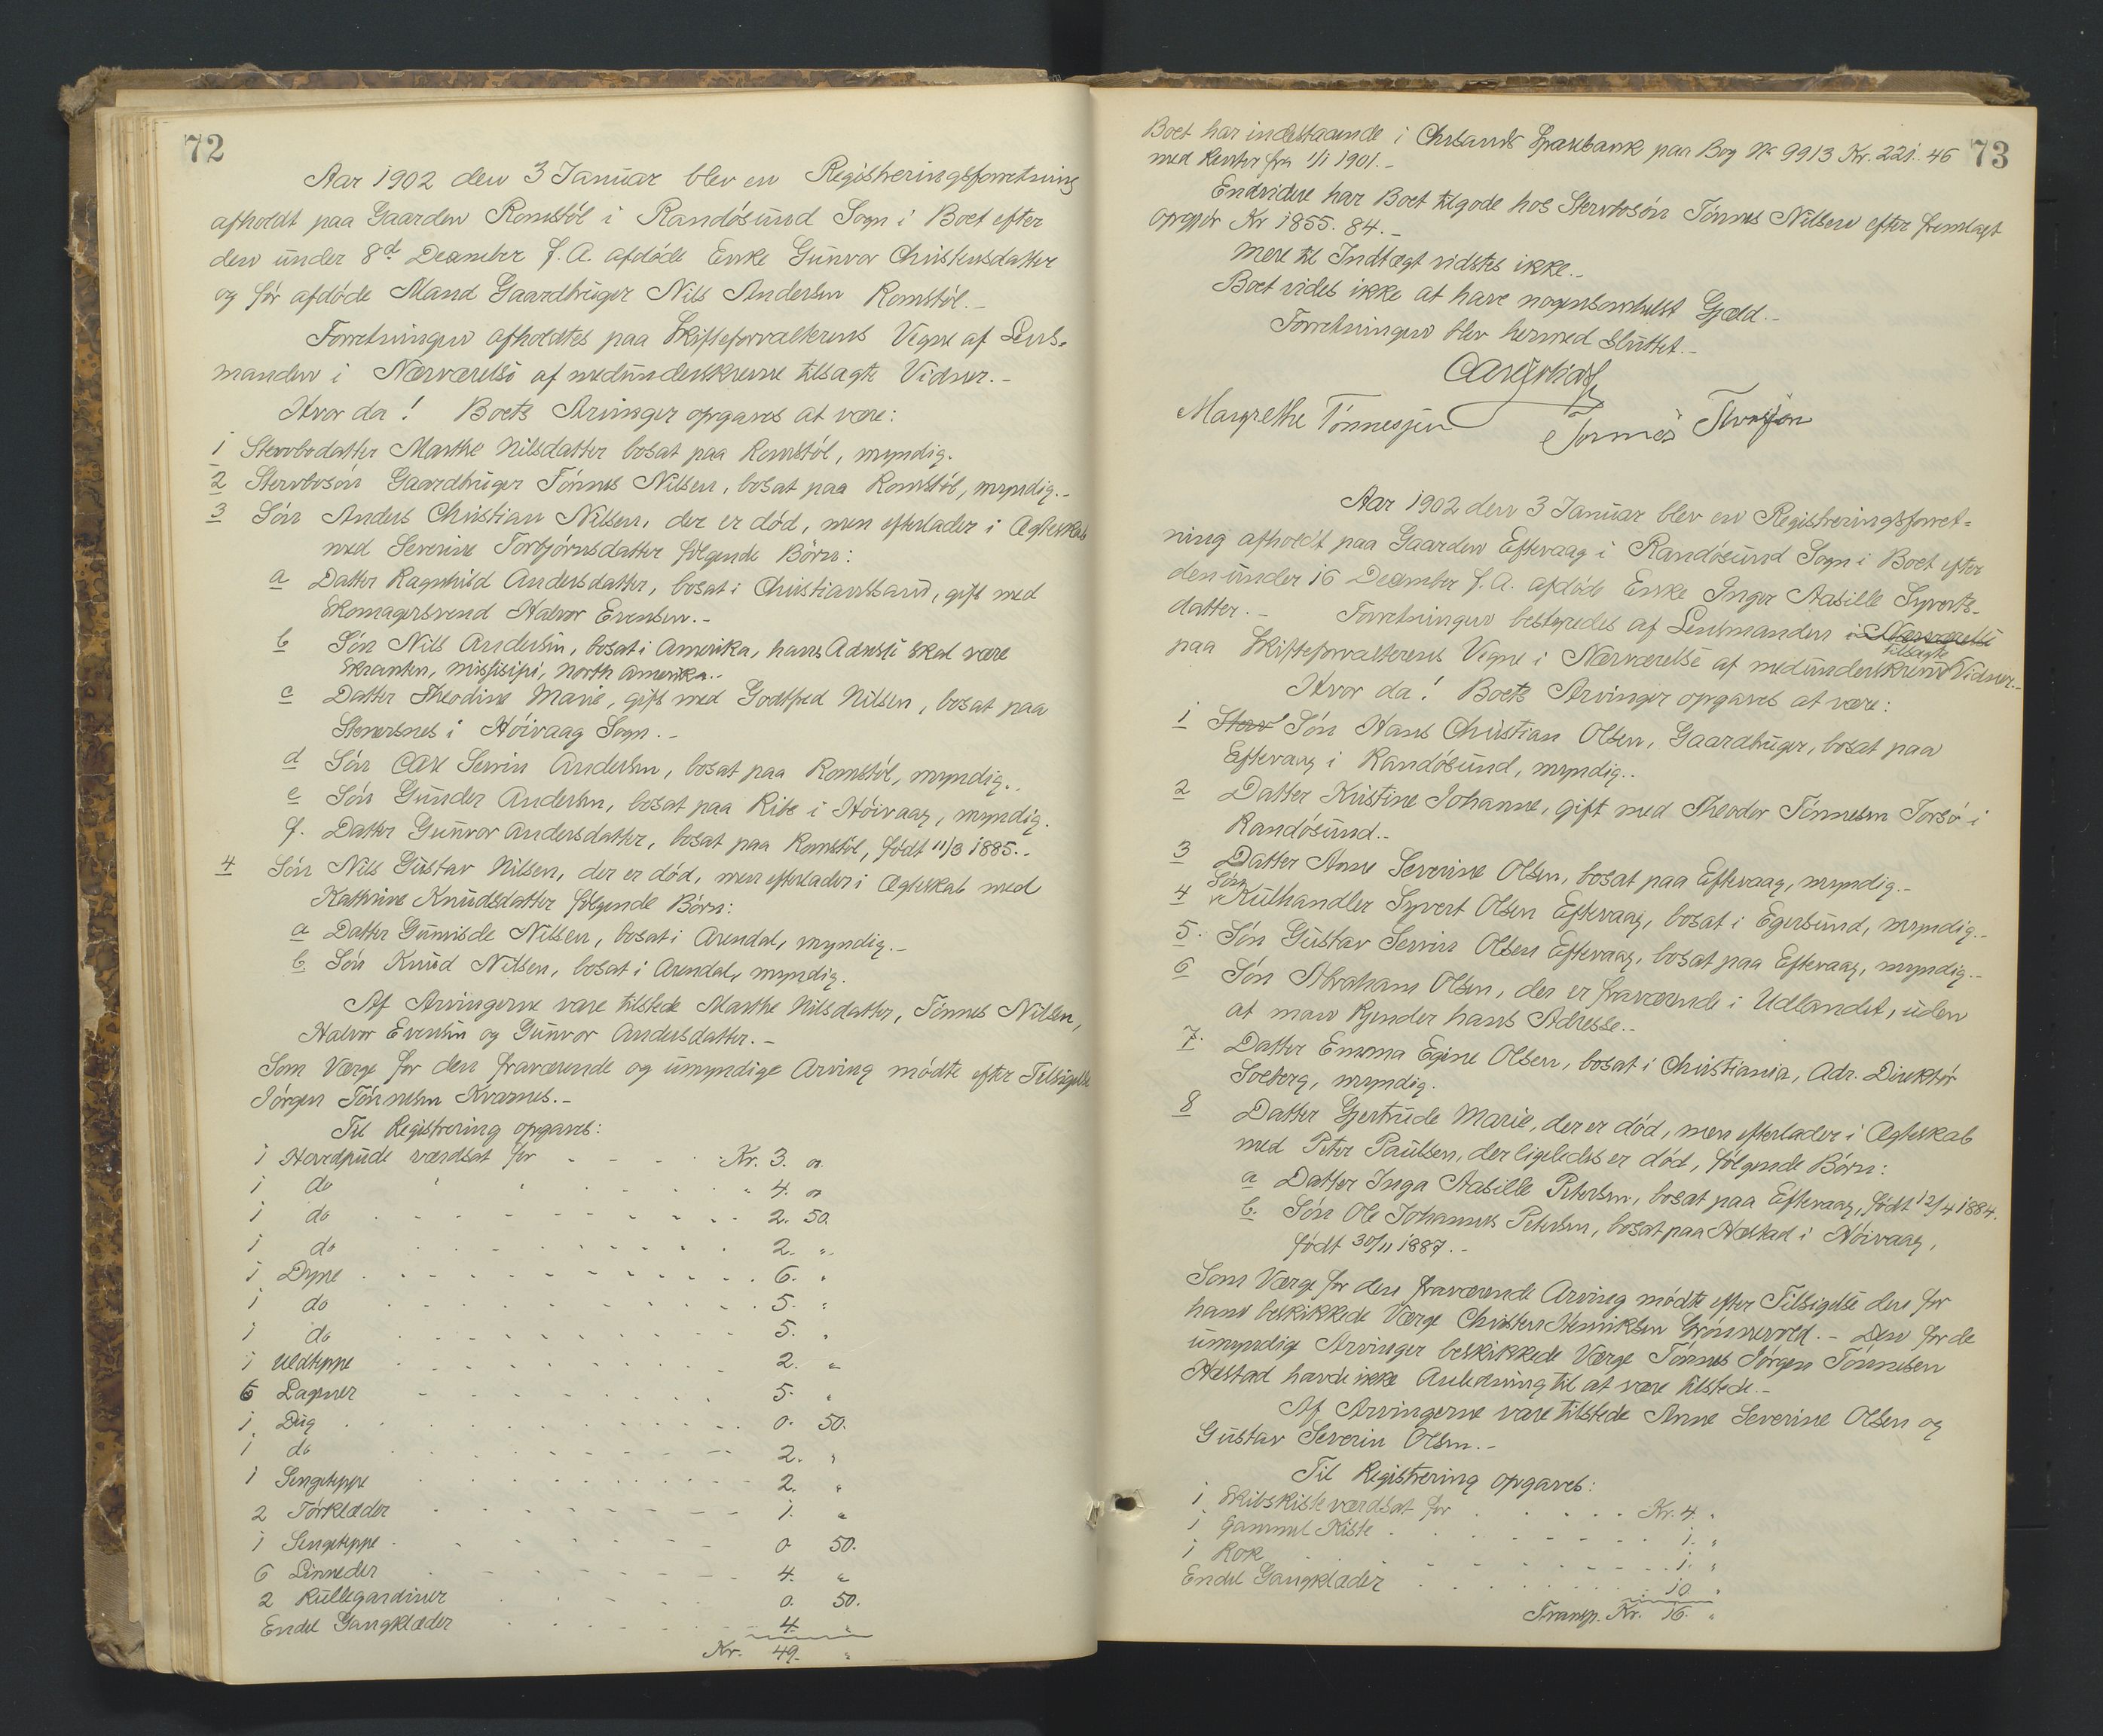 72
Aar 1902 den 3 Januar blev en Registreringsforretning
afholdt paa Gaarden Romstöl i Randösund Sogn i Boet efter
den under 8d December f. A. afdöde Enke Gunvor Christensdatter
og för afdöde Mand Gaardbruger Nils Andersen Romstöl.-
Forretningen afholdtes paa Skifteforvalterens Vegne af Lens-
manden i Nærværelse af medunderskrevne tilsagte Vidner.-
Hvor da! Boets Arvinger opgaves at være:
1 Stervbodatter Marthe Nilsdatter bosat paa Romstöl, myndig.
2 Stervbosön Gaardbruger Tönnes Nilsen, bosat paa Romstöl, myndig.-
3 Sön Anders Christian Nilsen, der er död, men efterlader i Ægteskab
med Severine Torbjörnsdatter fölgende Börn:
a Datter Ragnhild Andersdatter, bosat i Christianssand, gift med
Skomagersvend Halvor Evensen.-
b Sön Nils Andersen, bosat i Amerika, hans Adresse skal være
Skranten, Missisipi, North Amerika..
c Datter Theodine Marie, gift med Godtfred Nilsen, bosat paa
Stenersnes i Höivaag Sogn.-
d Sön Carl Severin Andersen, bosat paa Romstöl, myndig..
e Sön Gunder Andersen, bosat paa Ribe i Höivaag, myndig.
f. Datter Gunvor Andersdatter, bosat paa Romstöl, födt 11/3 1885.-
4 Sön Nils Gustav Nilsen, der er död, men efterlader i Ægteskab med
Kathrine Knudsdatter fölgende Börn:
a Datter Gunvilde Nilsen, bosat i Arendal, myndig.-
b Sön Knud Nilsen, bosat i Arendal, myndig.
Af Arvingerne vare tilstede Marthe Nilsdatter, Tönnes Nilsen,
Halvor Evensen og Gunvor Andersdatter.-
Som Værge for den fraværende og umyndige Arving mödte efter Tilsigelse
Jörgen Tönnesen Kvarnes.-
Til Registrering opgaves:
1 Hovedpude værdsat for Kr. 3. "
1 do 4. "
1 do 2. 50.
1 do 2. "
1 Dyne 6. "
1 do 5. "
1 do 5. "
1 Uldteppe 2. "
6 Lagner 5. "
1 Dug 0. 50.
1 do 2. "
1 Sengeteppe 2. "
2 Törklæder 1. "
1 Sengeteppe 0. 50.
6 Linneder 4. "
2 Rullegardiner 0. 50.
Endel Gangklæder 4. "
Kr. 49. "
73
Boet har indestaaende i Chrsands Sparebank paa Bog No 9913 Kr. 221. 46
med Renter fra 1/1 1901.-
Endvidere har Boet tilgode hos Stervbosön Tönnes Nilsen efter fremlagt
Opgjör Kr 1855. 84.-
Mere til Indtægt vidstes ikke.-
Boet vides ikke at have nogensomhelst Gjæld.-
Forretningen blev hermed sluttet.-
Margrethe Tönnesen
Aar 1902 den 3 Januar blev en Registreringsforret-
ning afholdt paa Gaarden Eftevaag i Randösund Sogn i Boet efter
den under 16 December f. A. afdöde Enke Inger Aasille Syverts-
datter.- Forretningen bestyredes af Lensmanden i Nærværelse
paa Skifteforvalterens Vegne i Nærværelse af medunderskrevne tilsagte Vidner.-
Hvor da! Boets Arvinger opgaves at være:
1 Sterv Sön Hans Christian Olsen, Gaardbruger, bosat paa
Eftevaag i Randösund, myndig..
2 Datter Kristine Johanne, gift med Theodor Tönnesen Torsö i
Randösund.-
3 Datter Anne Severine Olsen, bosat paa Eftevaag, myndig.-
4 Sön Kulhandler Syvert Olsen Eftevaag, bosat i Egersund, myndig.-
5. Sön Gustav Severin Olsen Eftevaag, bosat paa Eftevaag, myndig.-
6 Sön Abraham Olsen, der er fraværende i Udlandet, uden
at man kjender hans Adresse.-
7. Datter Emma Egine Olsen, bosat i Christiania, Adr. Direktör
Solberg, myndig.
8 Datter Gjertrude Marie, der er död, men efterlader i Ægteskab
med Peter Paulsen, der ligeledes er död, fölgende Börn:
a Datter Inga Aasille Petersen, bosat paa Eftevaag, födt 12/4 1884.
b. Sön Ole Johannes Petersen, bosat paa Hæstad i Höivaag,
födt 30/11 1887.-
Som Værge for den fraværende Arving mödte efter Tilsigelse den for
ham beskikkede Værge Christen Henriksen Grönnevold.- Den for de
umyndige Arvinger beskikkede Værge Tönnes Jörgen Tönnesen
Hæstad havde ikke Anledning til at være tilstede.-
Af Arvingerne vare tilstede Anne Severine Olsen og
Gustav Severin Olsen.-
Til Registrering opgaves:
1 Skibskiste værdsat for Kr. 4. "
1 gammel Kiste 1. "
1 Rok 1. "
Endel Gangklæder 10 "
Transp. Kr. 16. "